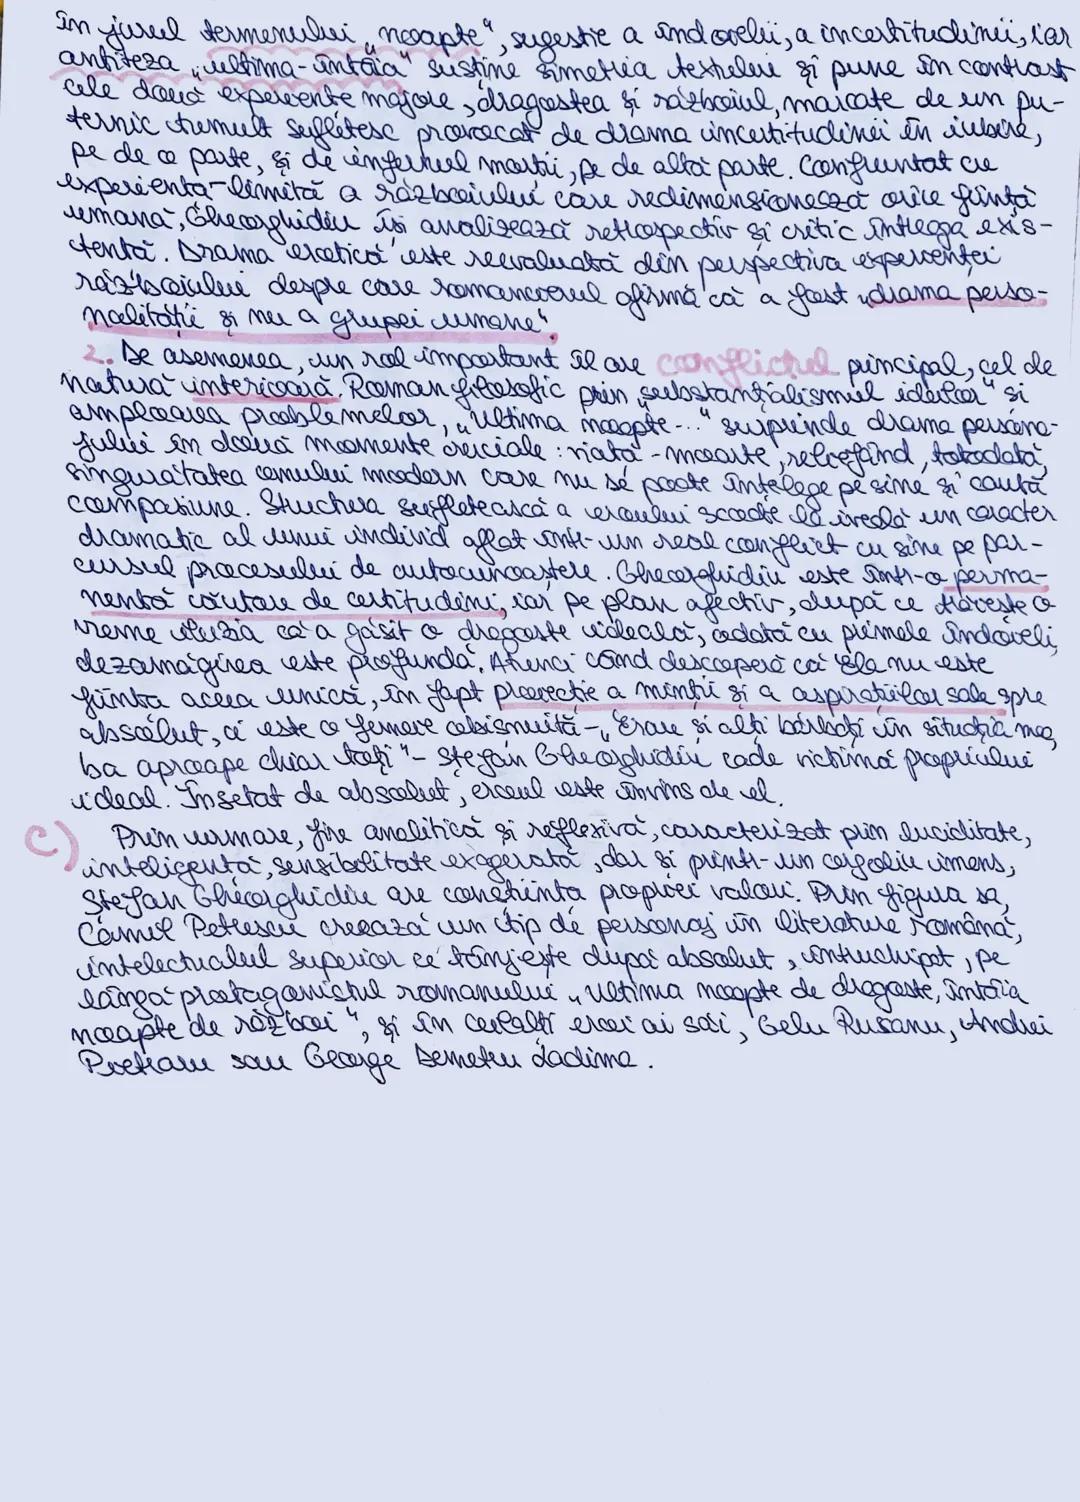 în jurul termenului „noapte", sugestie a îndoielii, a incertitudinii, iar
antiteza „ultima-întâia" susține simetria textului și pune în contrast
cele două experiențe majore, dragostea și războiul, marcate de un pu-
ternic tumult sufletesc provocat de drama incertitudinii în iubire,
pe de o parte, și de infernul morții, pe de altă parte. Confruntat cu
experiența-limită a războiului care redimensionează orice ființă
umană, Gheorghidiu își analizează retrospectiv și critic întreaga exis-
tență. Drama erotică este reevaluată din perspectiva experienței
războiului despre care romancierul afirmă că a fost „drama perso-
nalității și nu a grupei umane".
2. De asemenea, un rol important îl are conflictul principal, cel de
natură interioară. Roman filosofic prin „substanțialismul ideilor" și
amploarea problemelor, „Ultima noapte..." surprinde drama persona-
jului în două momente cruciale: viață-moarte, reliefând, totodată,
singurătatea omului modern care nu se poate înțelege pe sine și caută
compasiune. Structura sufletească a eroului scoate la iveală un caracter
dramatic al unui individ aflat într-un real conflict cu sine pe par-
cursul procesului de autocunoaștere. Gheorghidiu este într-o perma-
nentă căutare de certitudini, iar pe plan afectiv, după ce trăiește o
vreme iluzia că a găsit o dragoste ideală, odată cu primele îndoieli,
dezamăgirea este profundă. Atunci când descoperă că Ela nu este
ființa aceea unică, în fapt proiecție a minții și a aspirațiilor sale spre
absolut, ci este o femeie obișnuită - „Erau și alți bărbați în situația mea,
ba aproape chiar toți" - Ștefan Gheorghidiu cade victimă propriului
ideal. Însetat de absolut, eroul este învins de el.
c) Prin urmare, fire analitică și reflexivă, caracterizat prin luciditate,
inteligență, sensibilitate exagerată, dar și printr-un orgoliu imens,
Ștefan Gheorghidiu are conștiința propriei valori. Prin figura sa,
Camil Petrescu creează un tip de personaj în literatura română,
intelectualul superior ce tânjește după absolut, întruchipat, pe
lângă protagonistul romanului „Ultima noapte de dragoste, întâia
noapte de război", și în ceilalți eroi ai săi, Gelu Rusanu, Andrei
Pietraru sau George Demetru Ladima.